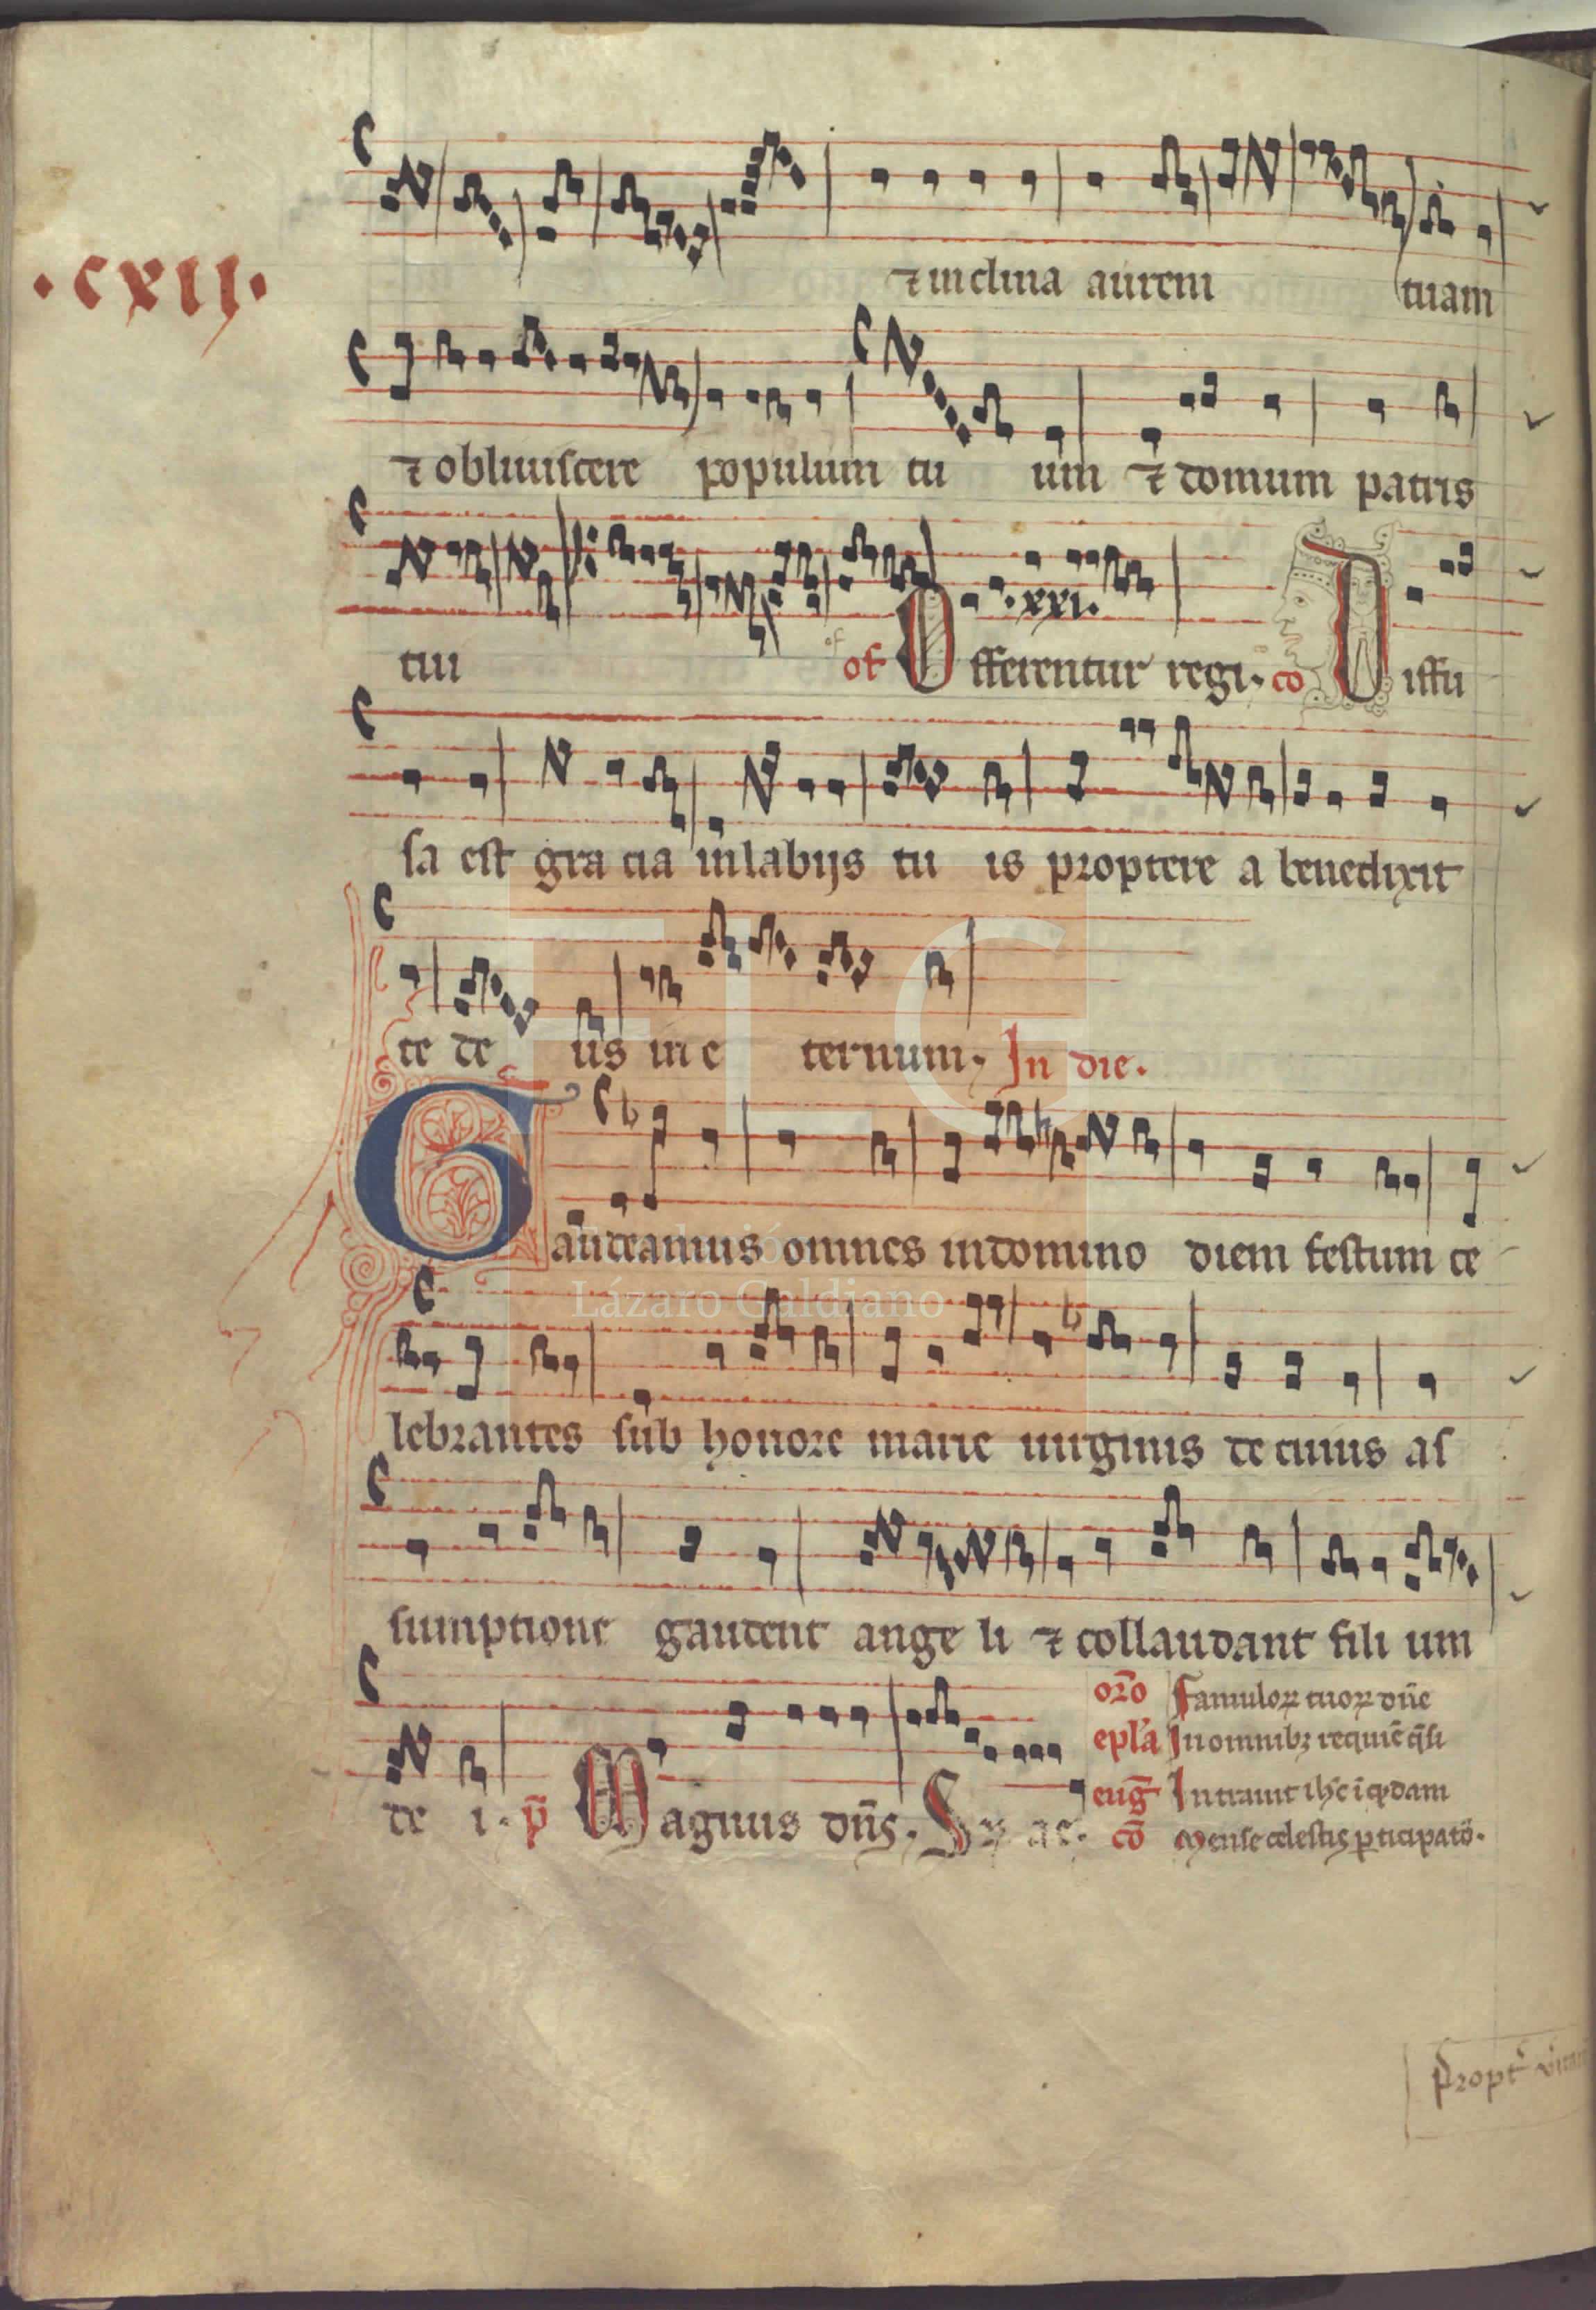 ·CXII·
⁊ inclina aurem tuam
⁊ obliuiscere populum tu um ⁊ domum patris
tui of Offerentur regi· ·xxi· co Diffu
sa est gra cia in labijs tu is proptere a benedixit
te de us in e ternum· In die·
Gaudeamus omnes in domino diem festum ce
lebrantes sub honore marie uirginis de cuius as
sumptione gaudent ange li ⁊ collaudant fili um
de i· p̄ Magnus dn̄s·
or̄o Famuloꝝ tuoꝝ dn̄e
ep̄la In omnibꝫ requiē q̄si
euḡ Intrauit ih̄c ī q̄dam
cō Mense celestis ꝑticipatō·
Propt̄
Lázaro Galdiano
FLG